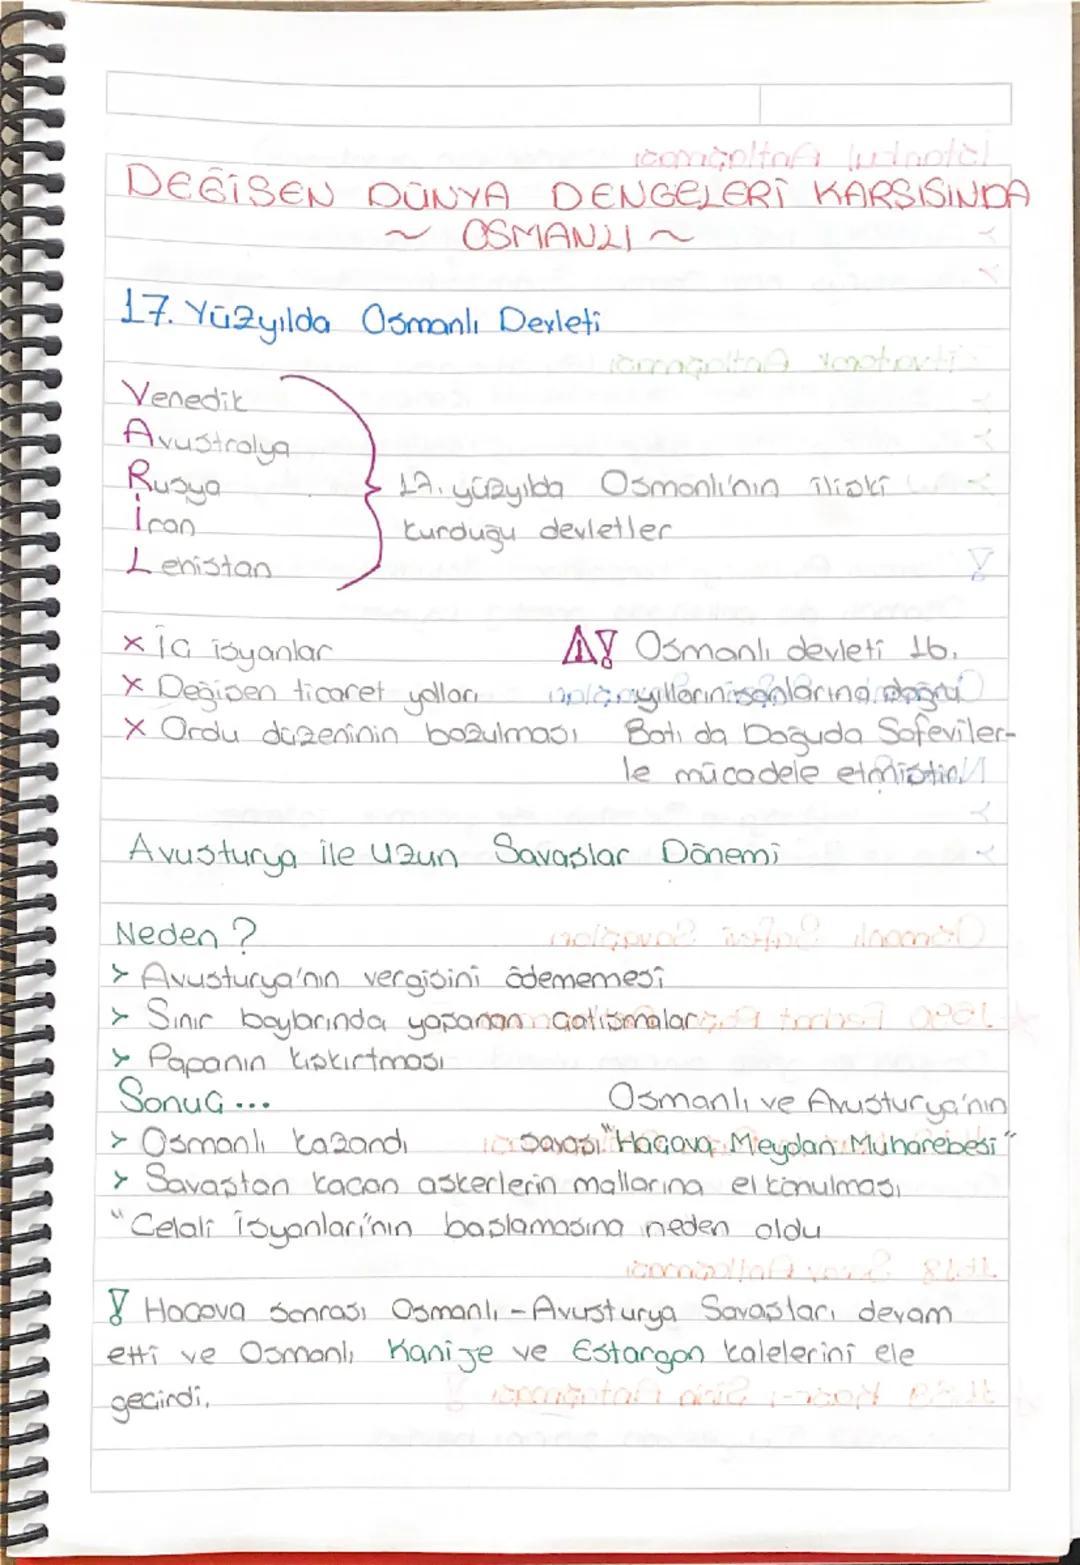 DEĞİŞEN DÜNYA DENGELERİ KARŞISINDA
~ OSMANLI ~
17. Yüzyılda Osmanlı Devleti
Venedik
Avustralya
Rusya
İran
Lehistan
17. yüzyılda Osmanlı'nın ilişki
kurduğu devletler
x İç isyanlar
x Değişen ticaret yolları
x Ordu düzeninin bozulması
⚠! Osmanlı devleti 16.
yılların sonlarına doğru
Batı da Doğuda Safeviler-
le mücadele etmiştir.
Avusturya ile Uzun Savaşlar Dönemi
Neden ?
> Avusturya'nın vergisini ödememesi
> Sınır boylarında yaşanan çatışmalar
> Papanın kışkırtması
Sonuç ...
> Osmanlı kazandı
> Savaştan kaçan askerlerin mallarına el konulması
"Celali İsyanları'nın başlamasına neden oldu
Osmanlı ve Avusturya'nın
savaşı "Haçova Meydan Muharebesi"
! Haçova sonrası Osmanlı - Avusturya Savaşları devam
etti ve Osmanlı, Kanije ve Estargon kalelerini ele
geçirdi.